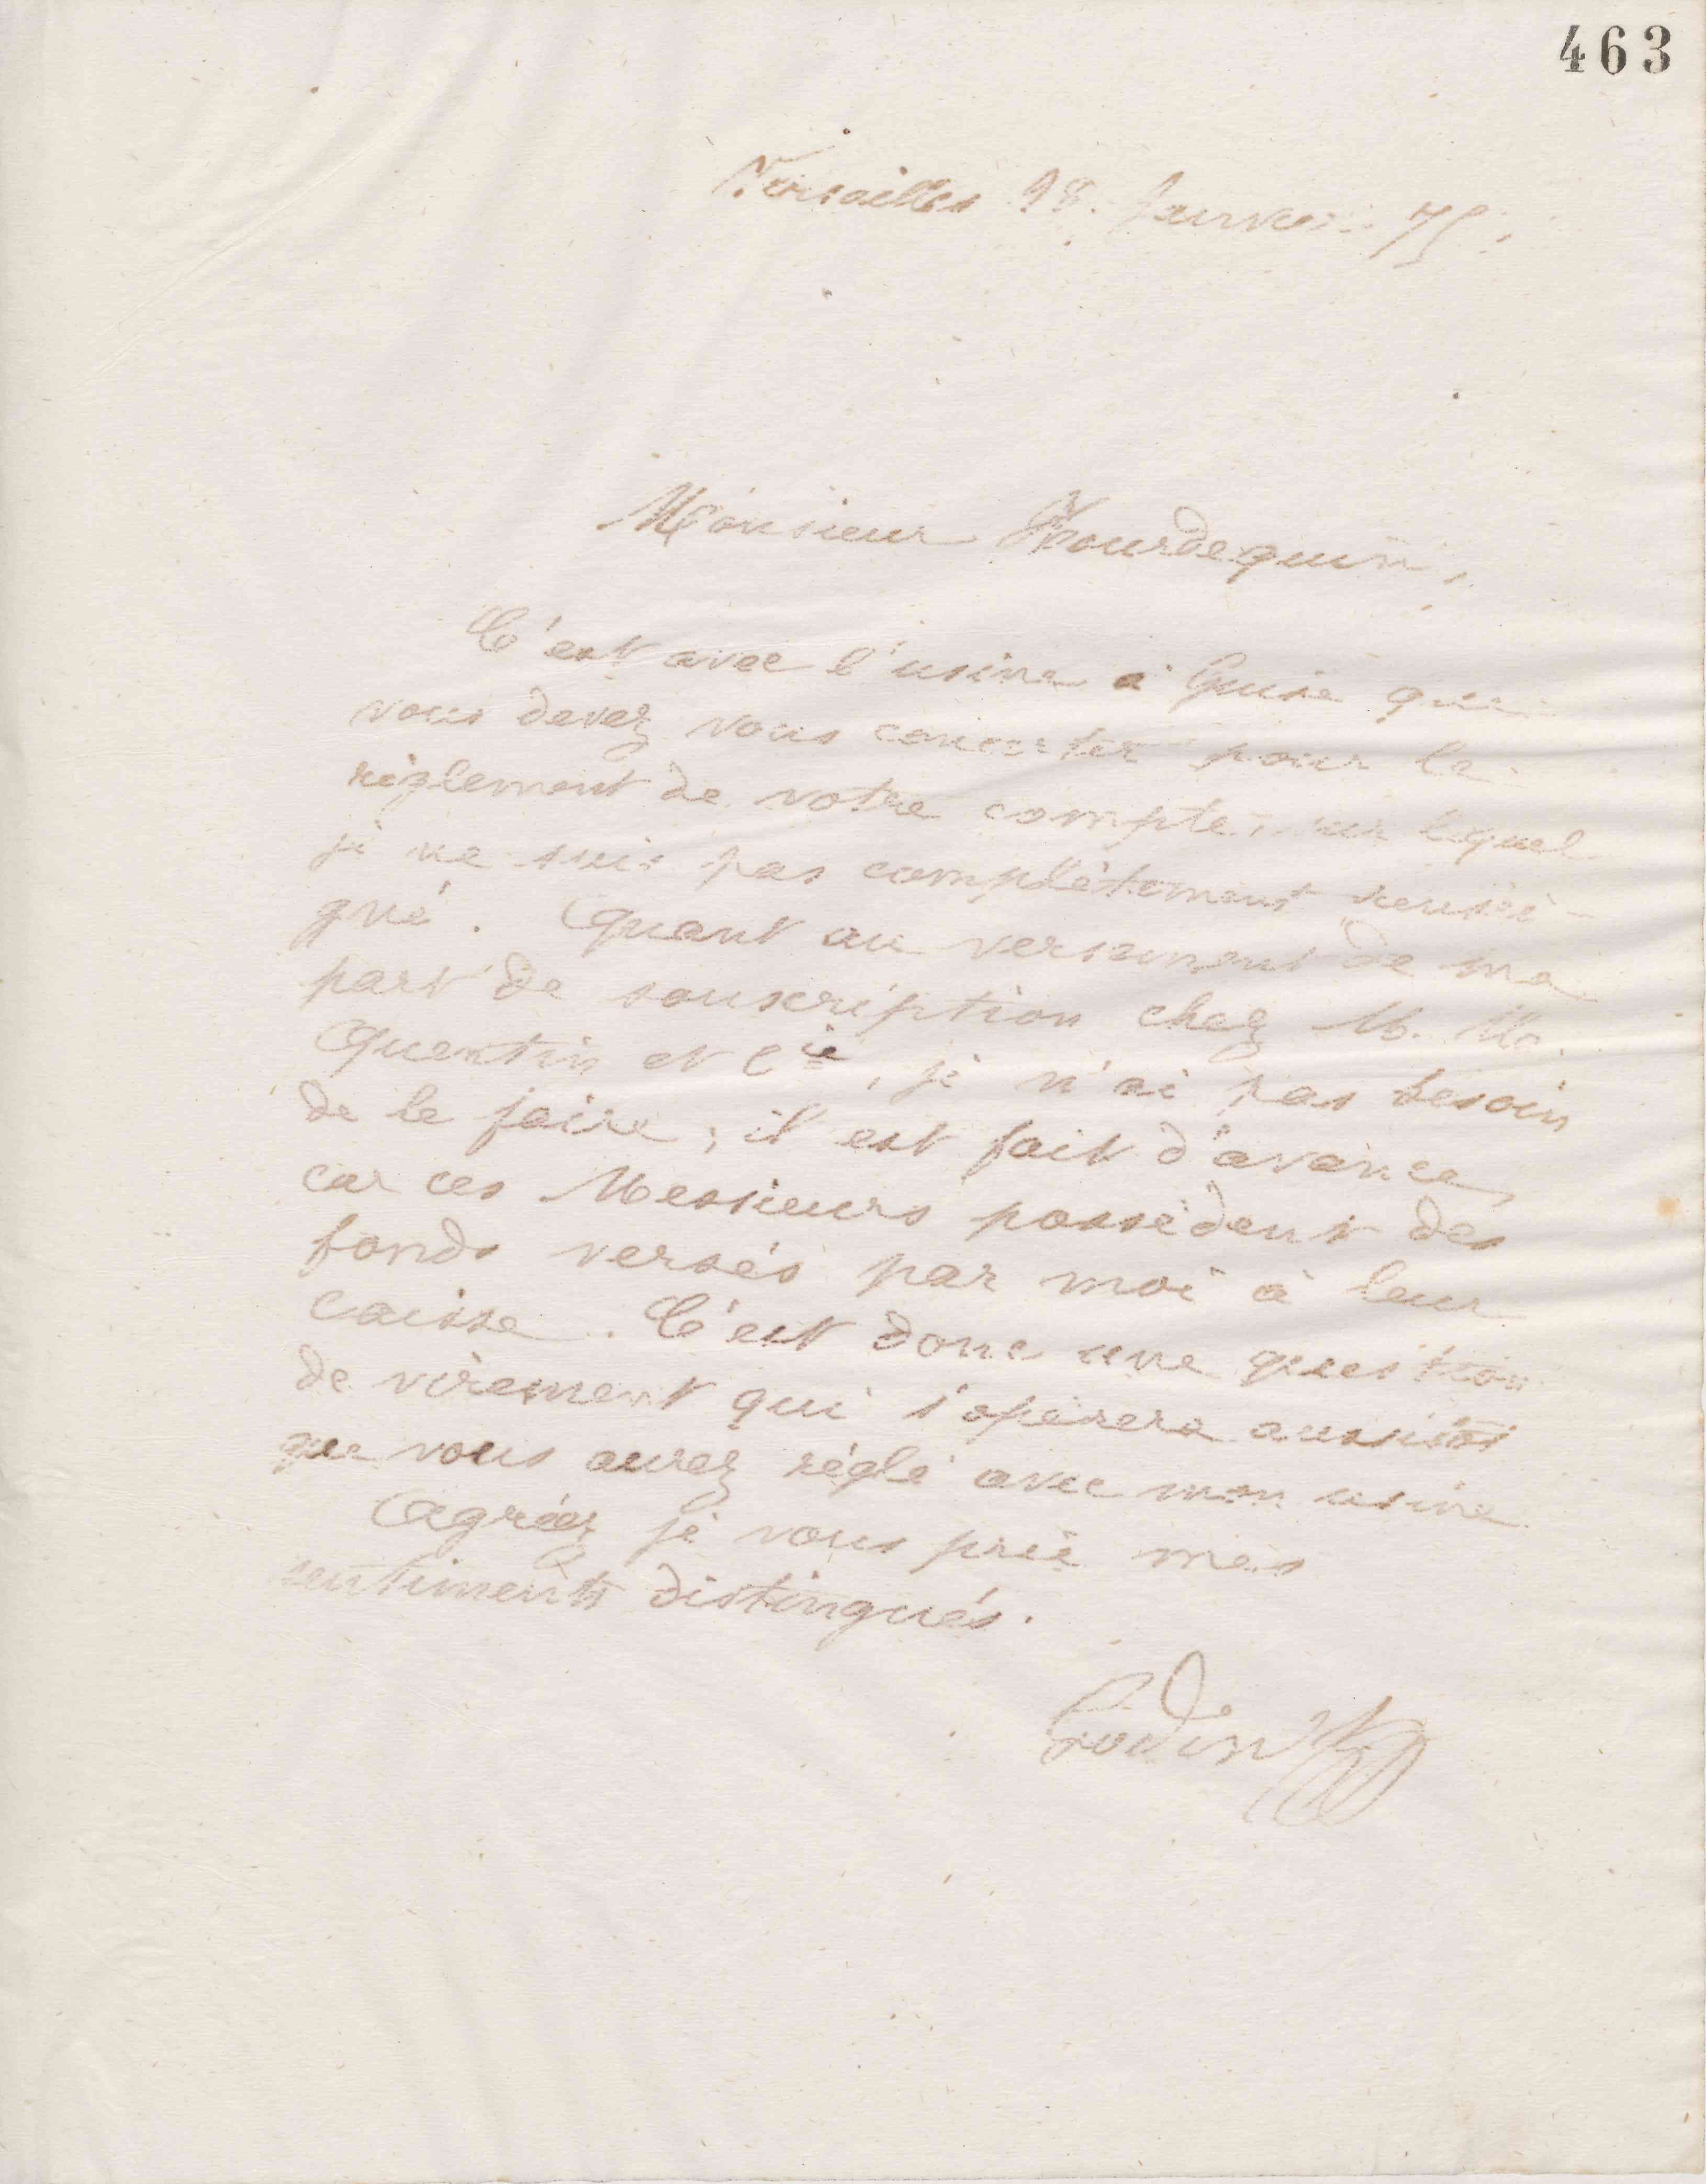 463
Versailles 18 Janvier 75.
Monsieur Hourdequin,
C'est avec l'usine à Guise que
vous devez vous concerter pour le
règlement de votre compte, sur lequel
je ne suis pas complètement rensei-
gné. Quant au versement de ma
part de souscription chez M. M.
Quentin et Cie, je n'ai pas besoin
de le faire; il est fait d'avance,
car ces Messieurs possèdent des
fonds versés par moi à leur
caisse. C'est donc une question
de virement qui s'opérera aussitôt
que vous aurez réglé avec mon usine.
Agréez je vous prie mes
sentiments distingués.
Godin